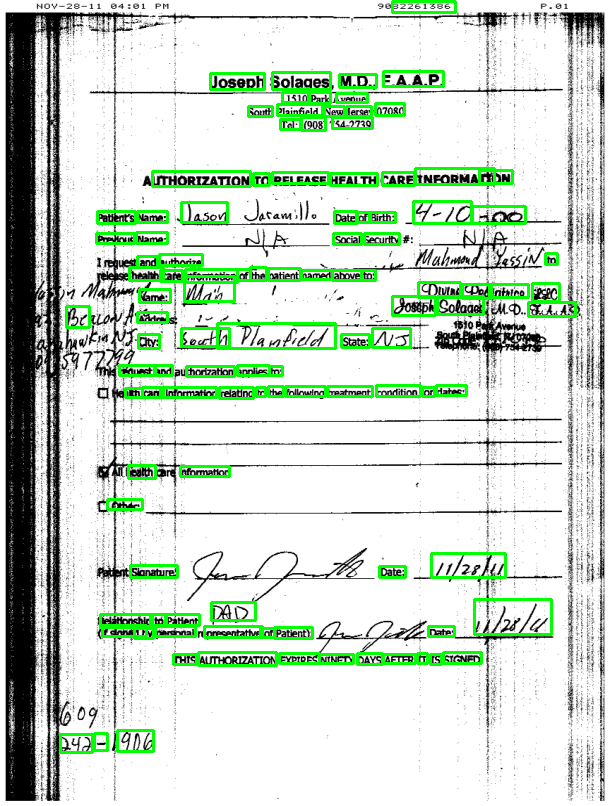 NOV-28-11 04:01 PM 9082261386 P.01
Joseph Solages, M.D., F.A.A.P.
1510 Park Avenue
South Plainfield New Jersey 07080
Tel: (908) 754-2739
AUTHORIZATION TO RELEASE HEALTH CARE INFORMATION
Patient's Name: Jason Jaramillo Date of Birth: 4-10-00
Previous Name: N/A Social Security #: N/A
I request and authorize Mahmoud Yassin to
release health care information of the patient named above to:
Name: Main
Joseph Solages, M.D., F.A.A.P.
Beacon A Address:
1510 Park Avenue
City: South Plainfield State: NJ
5977799
This request and authorization applies to:
Health care information relating to the following treatment condition or dates:
All health care information
Other:
Patient Signature: Date: 11/28/11
Relationship to Patient DAD
(if signed by personal representative of Patient) Date: 11/28/11
THIS AUTHORIZATION EXPIRES NINETY DAYS AFTER IT IS SIGNED
609
242-1906